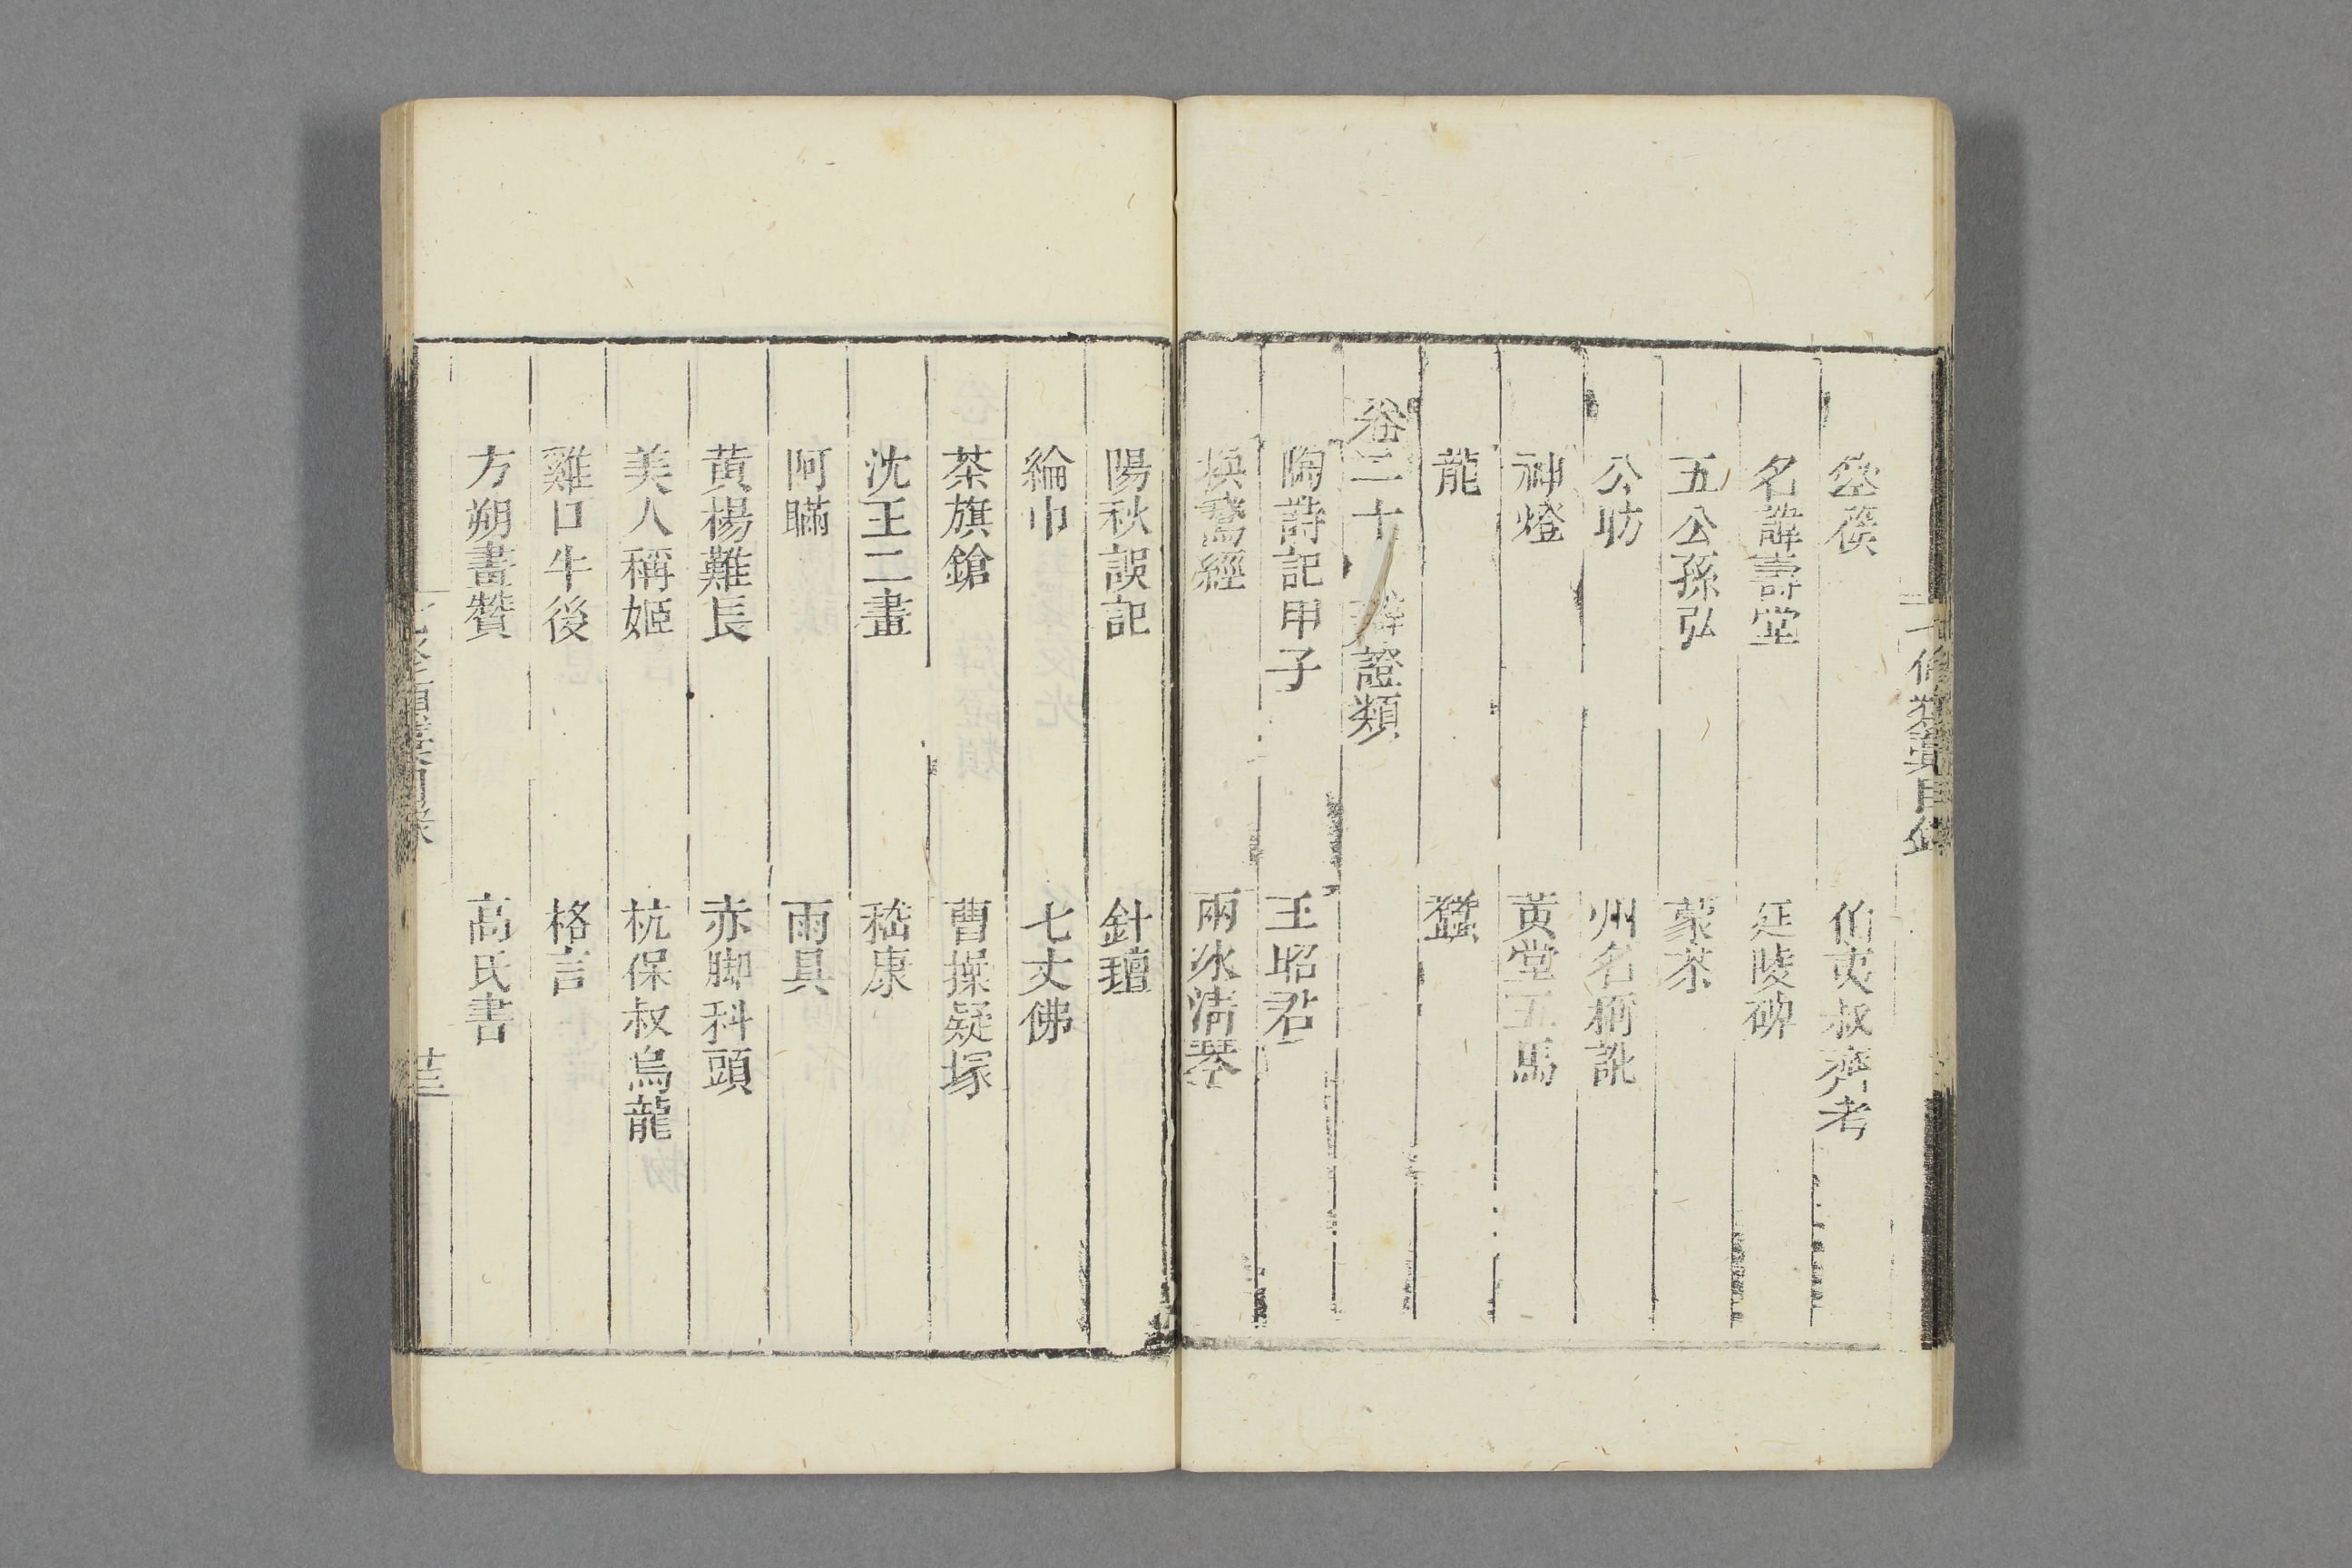 七修類藁目錄
箜篌　伯夷叔齊考
名諱壽堂　延陵碑
五公孫弘　蒙茶
公昉　州名稱訛
神燈　黃堂五馬
龍　蠶
卷二十　辯證類
陶詩記甲子　王昭君
換鵞經　兩氷清琴
陽秋誤記　針氊
綸巾　七丈佛
茶旗鎗　曹操疑塚
沈王二畫　嵇康
阿瞞　雨具
黃楊難長　赤脚科頭
美人稱姬　杭保叔烏龍
雞口牛後　格言
方朔畫贊　高氏書
七修類藁目錄